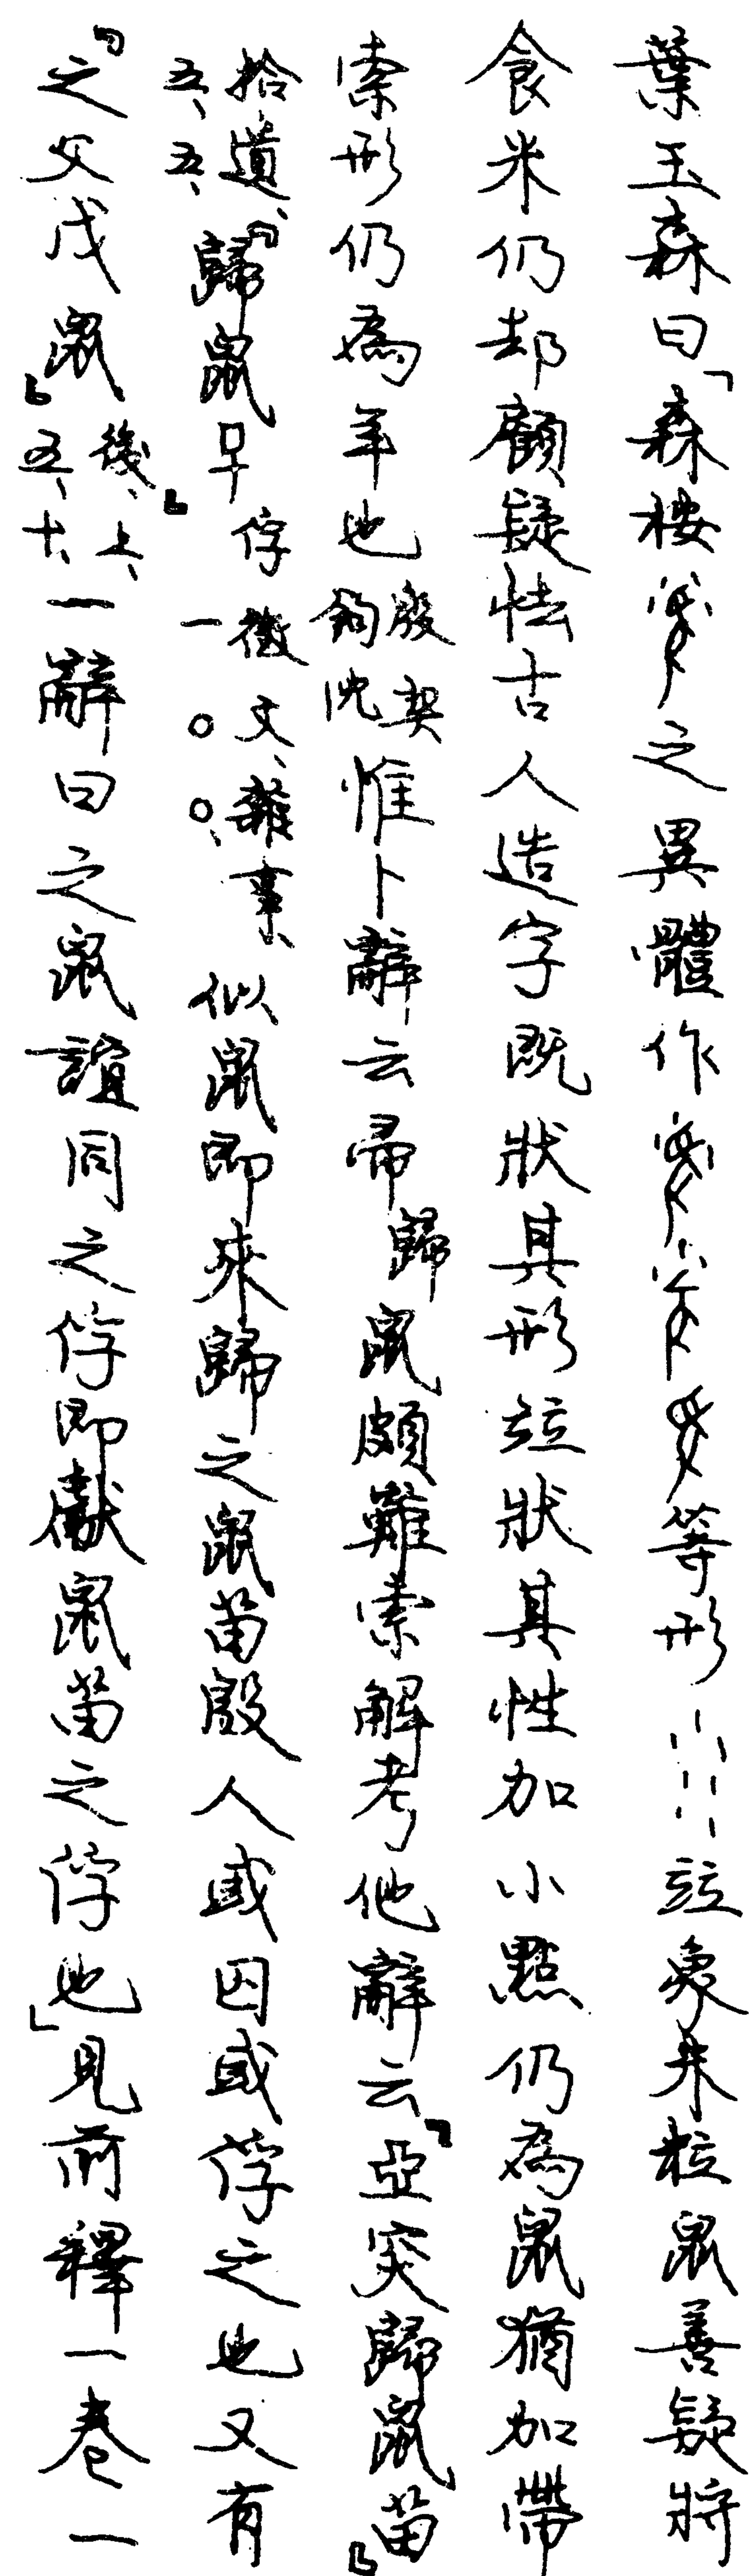 葉玉森曰「森桉之異體作等形竝象米粒鼠善疑將
食米仍却顧疑怯古人造字既狀其形竝狀其性加小點仍為鼠猶加帶
索形仍為羊也殷契鉤沈惟卜辭云帚歸鼠頗難索解考他辭云『亞突歸鼠苗』
拾遺、五、五、『歸鼠』俘徵文、雜事、一〇〇、似鼠即來歸之鼠苗殷人或囚或俘之也又有
『之父戊鼠』後、上、五、十、一辭曰之鼠誼同之俘即獻鼠苗之俘也」見前釋一卷一